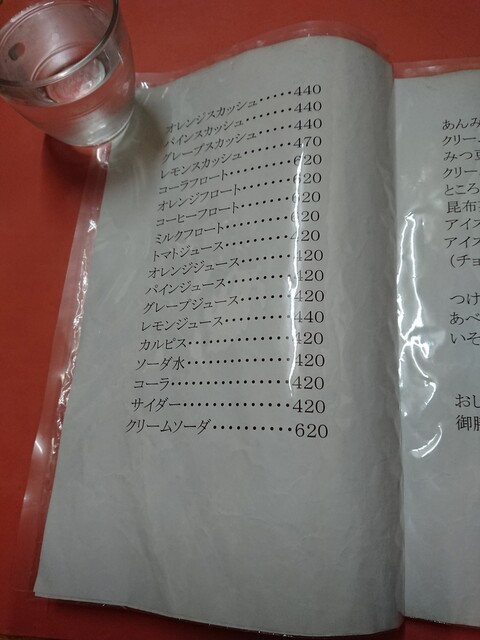 オレンジスカッシュ・・・・・440
パインスカッシュ・・・・・・440
グレープスカッシュ・・・・・440
レモンスカッシュ・・・・・・470
コーラフロート・・・・・・・620
オレンジフロート・・・・・・620
コーヒーフロート・・・・・・620
ミルクフロート・・・・・・・620
トマトジュース・・・・・・・420
オレンジジュース・・・・・・420
パインジュース・・・・・・・420
グレープジュース・・・・・・420
レモンジュース・・・・・・・440
カルピス・・・・・・・・・・・420
ソーダ水・・・・・・・・・・・420
コーラ・・・・・・・・・・・・420
サイダー・・・・・・・・・・・420
クリームソーダ・・・・・・・・・620
あんみ
クリー
みつ豆
クリー
ところ
昆布
アイス
アイス
(チョ
つけ
あべ
いそ
おし
御